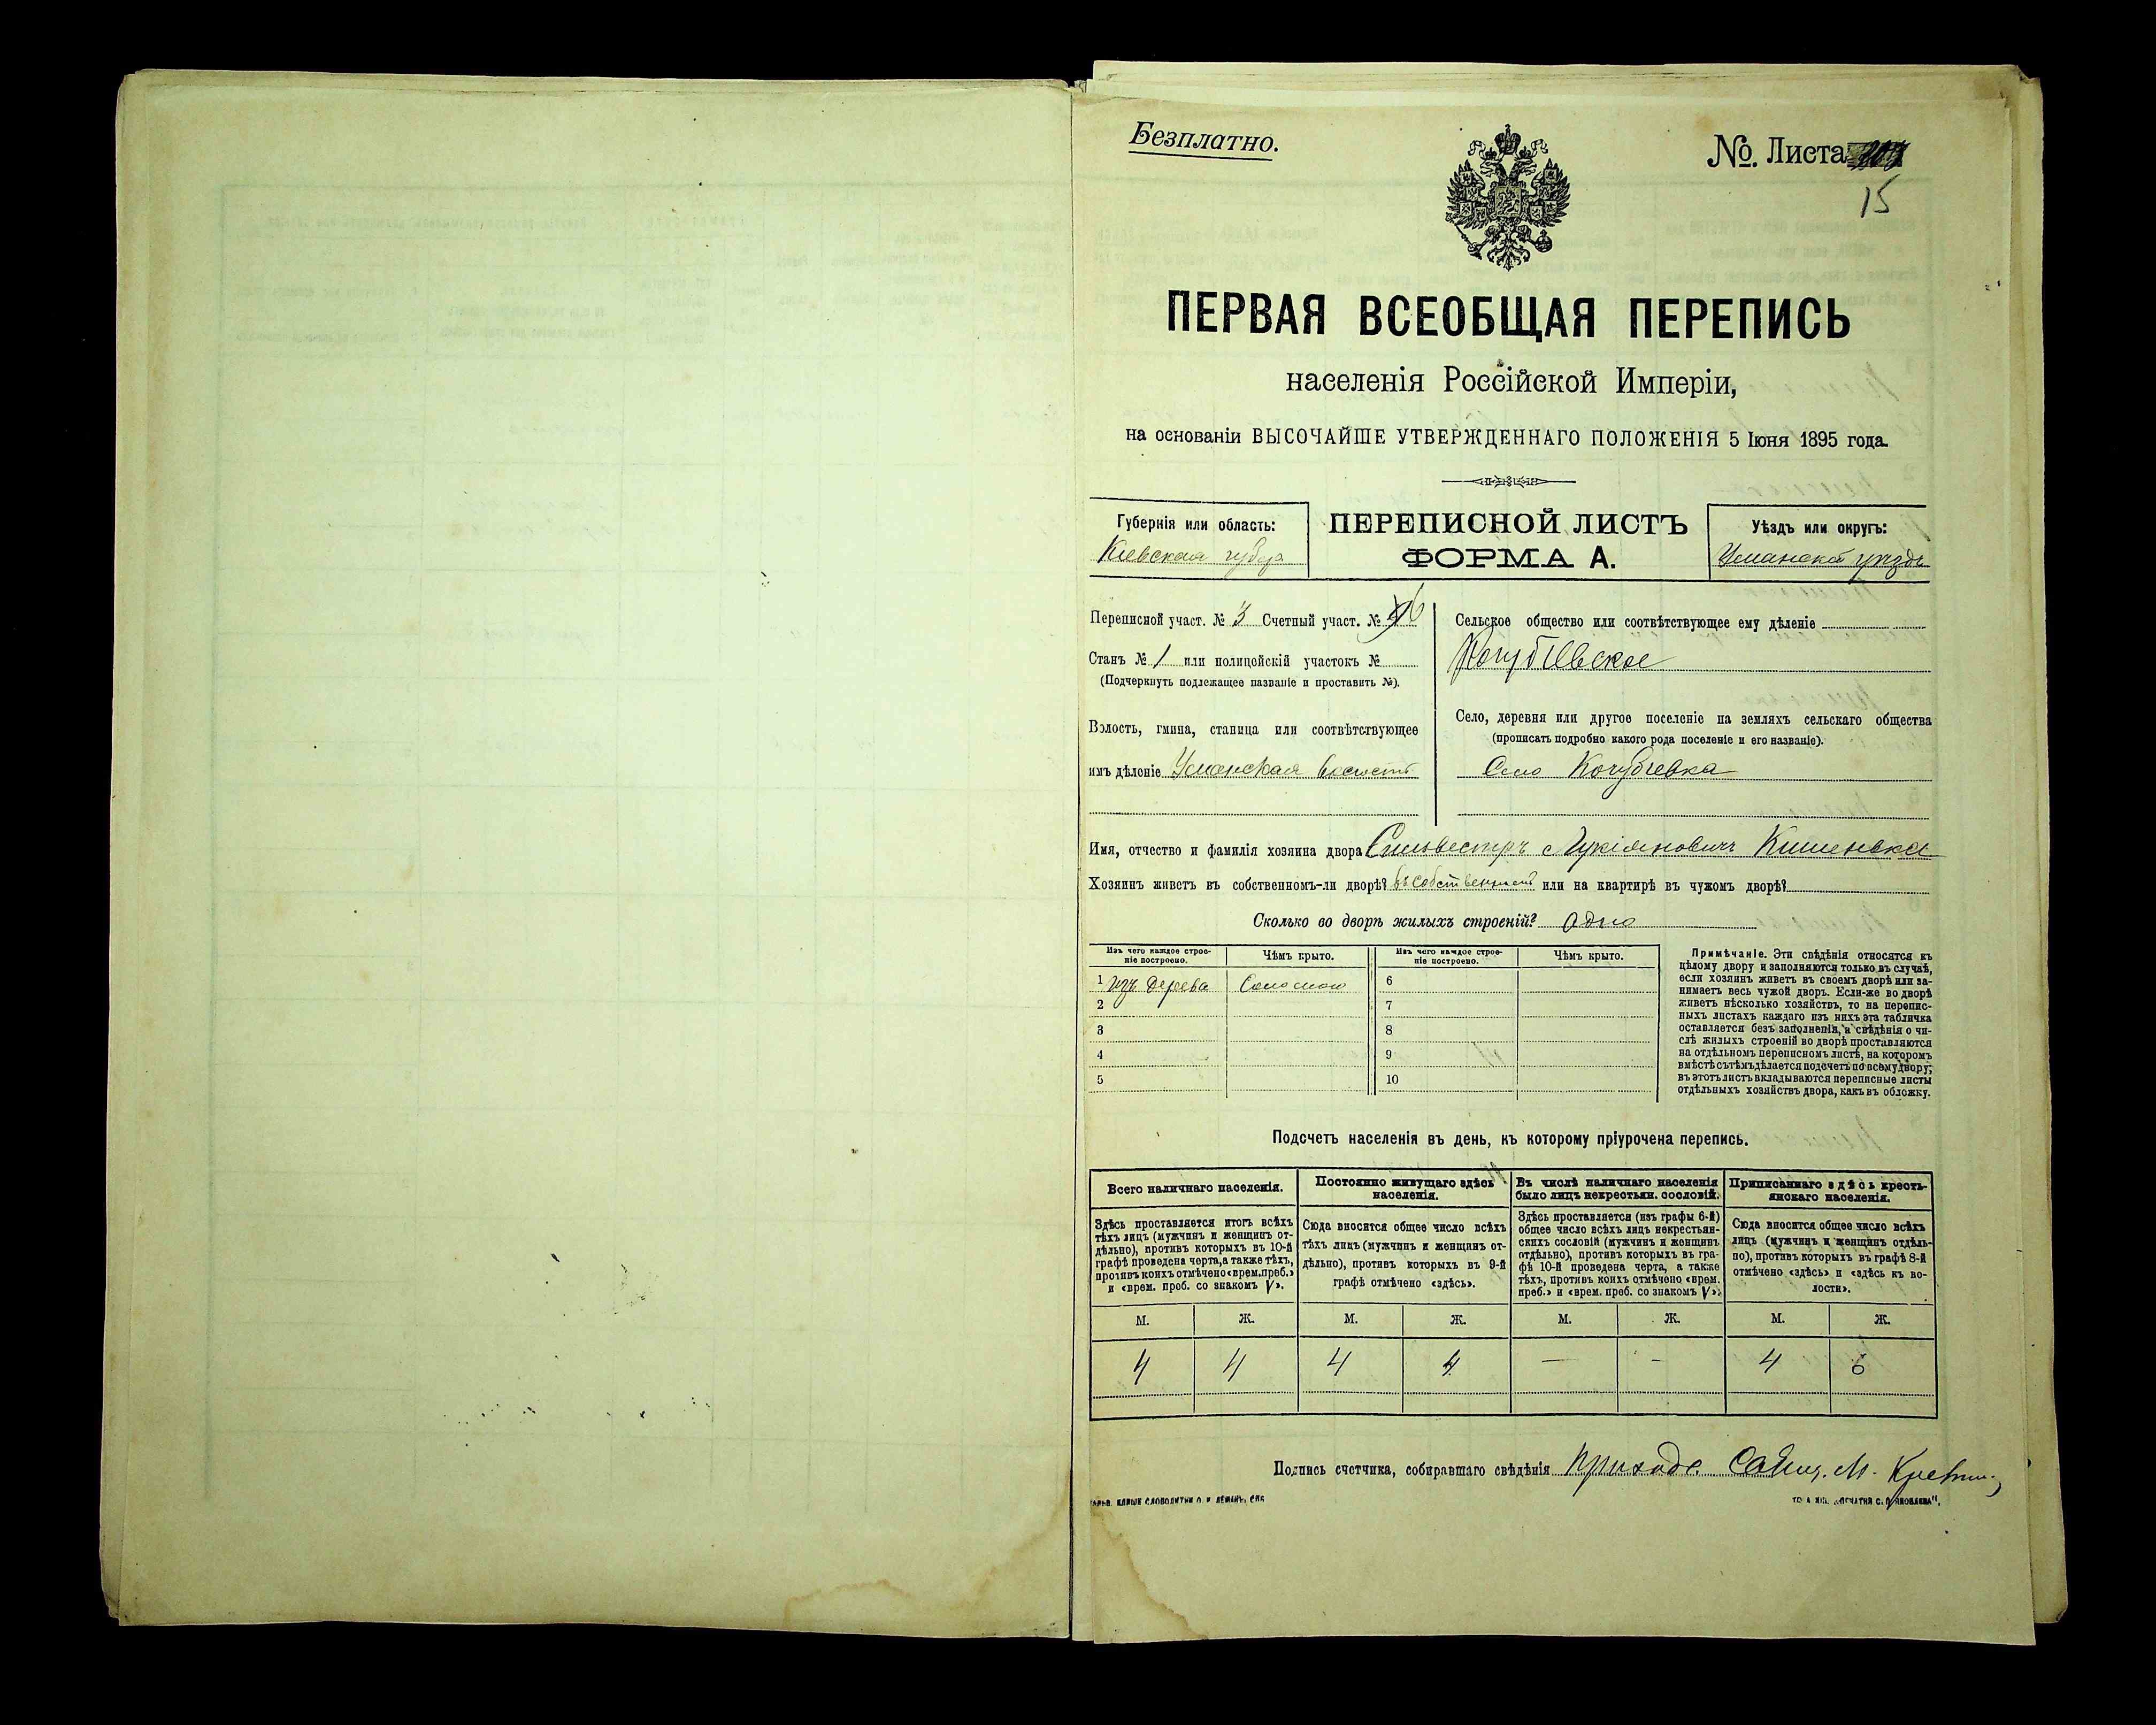 Безплатно.
№ Листа
15
ПЕРВАЯ ВСЕОБЩАЯ ПЕРЕПИСЬ
населенія Россійской Имперіи,
на основаніи ВЫСОЧАЙШЕ УТВЕРЖДЕННАГО ПОЛОЖЕНІЯ 5 Іюня 1895 года.
Губернія или область:
Кіевская губер
ПЕРЕПИСНОЙ ЛИСТЪ
ФОРМА А.
Уѣздъ или округъ:
Уманскій уѣздъ
Переписной участ. № 3 Счетный участ. №
Станъ № 1 или полицейскій участокъ №
(Подчеркнуть подлежащее названіе и проставить №).
Волость, гмина, станица или соотвѣтствующее
имъ дѣленіе Уманская волость
Сельское общество или соотвѣтствующее ему дѣленіе
Кочубіевское
Село, деревня или другое поселеніе на земляхъ сельскаго общества
(прописать подробно какого рода поселеніе и его названіе).
Село Кочубіевка
Имя, отчество и фамилія хозяина двора Сильвестръ Лукіяновичъ Кишенька
Хозяинъ живетъ въ собственномъ-ли дворѣ? въ собственномъ или на квартирѣ въ чужомъ дворѣ?
Сколько во дворѣ жилыхъ строеній? Одно
Изъ чего каждое строе-
ніе построено.
Чѣмъ крыто.
Изъ чего каждое строе-
ніе построено.
Чѣмъ крыто.
1 изъ дерева Соломою 6
2 7
3 8
4 9
5 10
Примѣчаніе. Эти свѣдѣнія относятся къ
цѣлому двору и заполняются только въ случаѣ,
если хозяинъ живетъ въ своемъ дворѣ или за-
нимаетъ весь чужой дворъ. Если-же во дворѣ
живетъ нѣсколько хозяйствъ, то на перепис-
ныхъ листахъ каждаго изъ нихъ эта табличка
оставляется безъ заполненія, и свѣдѣнія о чи-
слѣ жилыхъ строеній во дворѣ проставляются
на отдѣльномъ переписномъ листѣ, на которомъ
вмѣстѣ съ тѣмъ дѣлается подсчетъ по всему двору;
въ этотъ листъ вкладываются переписные листы
отдѣльныхъ хозяйствъ двора, какъ въ обложку.
Подсчетъ населенія въ день, къ которому пріурочена перепись.
Всего наличнаго населенія.
Постоянно живущаго здѣсь
населенія.
Въ числѣ наличнаго населенія
было лицъ некрестьян. сословій.
Приписаннаго здѣсь кресть-
янскаго населенія.
Здѣсь проставляется итогъ всѣхъ
тѣхъ лицъ (мужчинъ и женщинъ от-
дѣльно), противъ которыхъ въ 10-й
графѣ проведена черта, а также тѣхъ,
противъ коихъ отмѣчено «врем. преб.»
и «врем. преб. со знакомъ V».
Сюда вносится общее число всѣхъ
тѣхъ лицъ (мужчинъ и женщинъ от-
дѣльно), противъ которыхъ въ 9-й
графѣ отмѣчено «здѣсь».
Здѣсь проставляется (изъ графы 6-й)
общее число всѣхъ лицъ некрестьян-
скихъ сословій (мужчинъ и женщинъ
отдѣльно), противъ которыхъ въ гра-
фѣ 10-й проведена черта, а также
тѣхъ, противъ коихъ отмѣчено «врем.
преб.» и «врем. преб. со знакомъ V».
Сюда вносится общее число всѣхъ
лицъ (мужчинъ и женщинъ отдѣль-
но), противъ которыхъ въ графѣ 8-й
отмѣчено «здѣсь» и «здѣсь къ во-
лости».
М. Ж. М. Ж. М. Ж. М. Ж.
4 4 4 4 — - 4 6
Подпись счетчика, собиравшаго свѣдѣнія